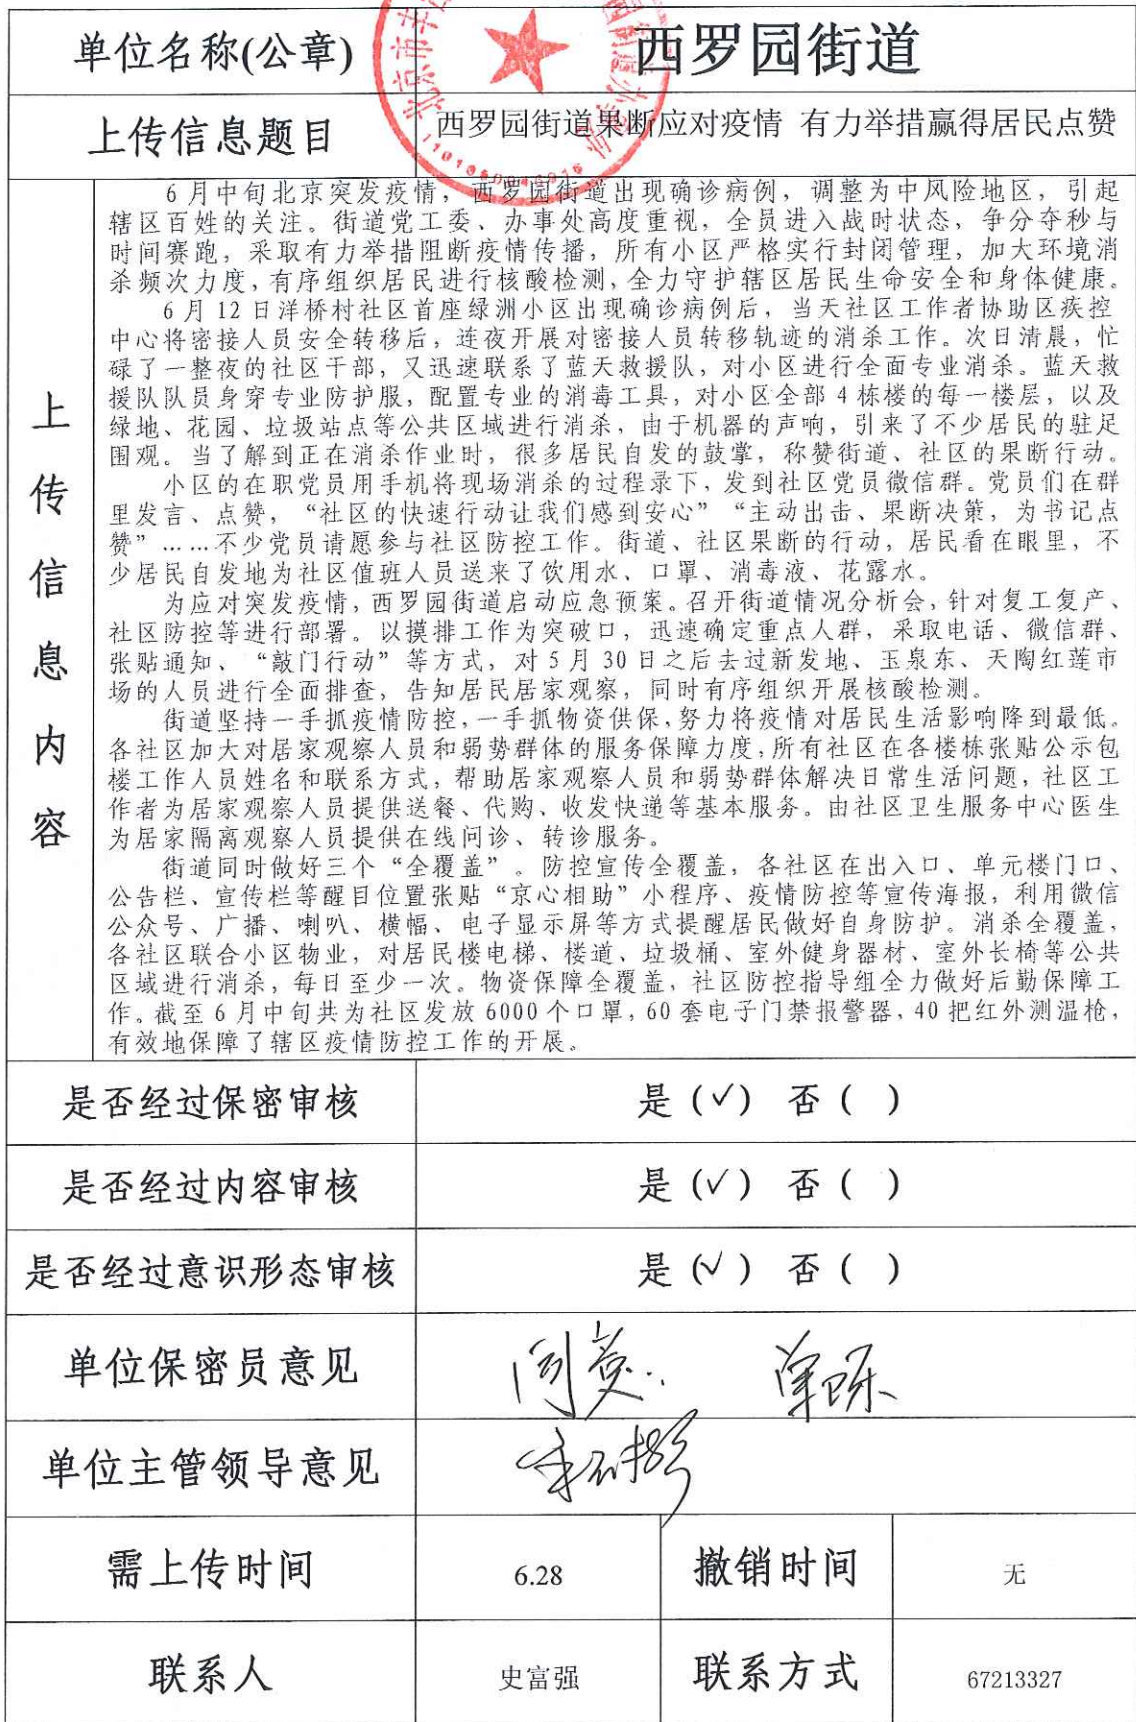 单位名称(公章) 西罗园街道
上传信息题目 西罗园街道果断应对疫情 有力举措赢得居民点赞
上传信息内容
6月中旬北京突发疫情，西罗园街道出现确诊病例，调整为中风险地区，引起
辖区百姓的关注。街道党工委、办事处高度重视，全员进入战时状态，争分夺秒与
时间赛跑，采取有力举措阻断疫情传播，所有小区严格实行封闭管理，加大环境消
杀频次力度，有序组织居民进行核酸检测，全力守护辖区居民生命安全和身体健康。
6月12日洋桥村社区首座绿洲小区出现确诊病例后，当天社区工作者协助区疾控
中心将密接人员安全转移后，连夜开展对密接人员转移轨迹的消杀工作。次日清晨，忙
碌了一整夜的社区干部，又迅速联系了蓝天救援队，对小区进行全面专业消杀。蓝天救
援队队员身穿专业防护服，配置专业的消毒工具，对小区全部4栋楼的每一楼层，以及
绿地、花园、垃圾站点等公共区域进行消杀，由于机器的声响，引来了不少居民的驻足
围观。当了解到正在消杀作业时，很多居民自发的鼓掌，称赞街道、社区的果断行动。
小区的在职党员用手机将现场消杀的过程录下，发到社区党员微信群。党员们在群
里发言、点赞，“社区的快速行动让我们感到安心”“主动出击、果断决策，为书记点
赞”……不少党员请愿参与社区防控工作。街道、社区果断的行动，居民看在眼里，不
少居民自发地为社区值班人员送来了饮用水、口罩、消毒液、花露水。
为应对突发疫情，西罗园街道启动应急预案。召开街道情况分析会，针对复工复产、
社区防控等进行部署。以摸排工作为突破口，迅速确定重点人群，采取电话、微信群、
张贴通知、“敲门行动”等方式，对5月30日之后去过新发地、玉泉东、天陶红莲市
场的人员进行全面排查，告知居民居家观察，同时有序组织开展核酸检测。
街道坚持一手抓疫情防控，一手抓物资供保，努力将疫情对居民生活影响降到最低。
各社区加大对居家观察人员和弱势群体的服务保障力度，所有社区在各楼栋张贴公示包
楼工作人员姓名和联系方式，帮助居家观察人员和弱势群体解决日常生活问题，社区工
作者为居家观察人员提供送餐、代购、收发快递等基本服务。由社区卫生服务中心医生
为居家隔离观察人员提供在线问诊、转诊服务。
街道同时做好三个“全覆盖”。防控宣传全覆盖，各社区在出入口、单元楼门口、
公告栏、宣传栏等醒目位置张贴“京心相助”小程序、疫情防控等宣传海报，利用微信
公众号、广播、喇叭、横幅、电子显示屏等方式提醒居民做好自身防护。消杀全覆盖，
各社区联合小区物业，对居民楼电梯、楼道、垃圾桶、室外健身器材、室外长椅等公共
区域进行消杀，每日至少一次。物资保障全覆盖，社区防控指导组全力做好后勤保障工
作。截至6月中旬共为社区发放6000个口罩，60套电子门禁报警器，40把红外测温枪，
有效地保障了辖区疫情防控工作的开展。
是否经过保密审核 是（√） 否（ ）
是否经过内容审核 是（√） 否（ ）
是否经过意识形态审核 是（√） 否（ ）
单位保密员意见
单位主管领导意见
需上传时间 6.28 撤销时间 无
联系人 史富强 联系方式 67213327